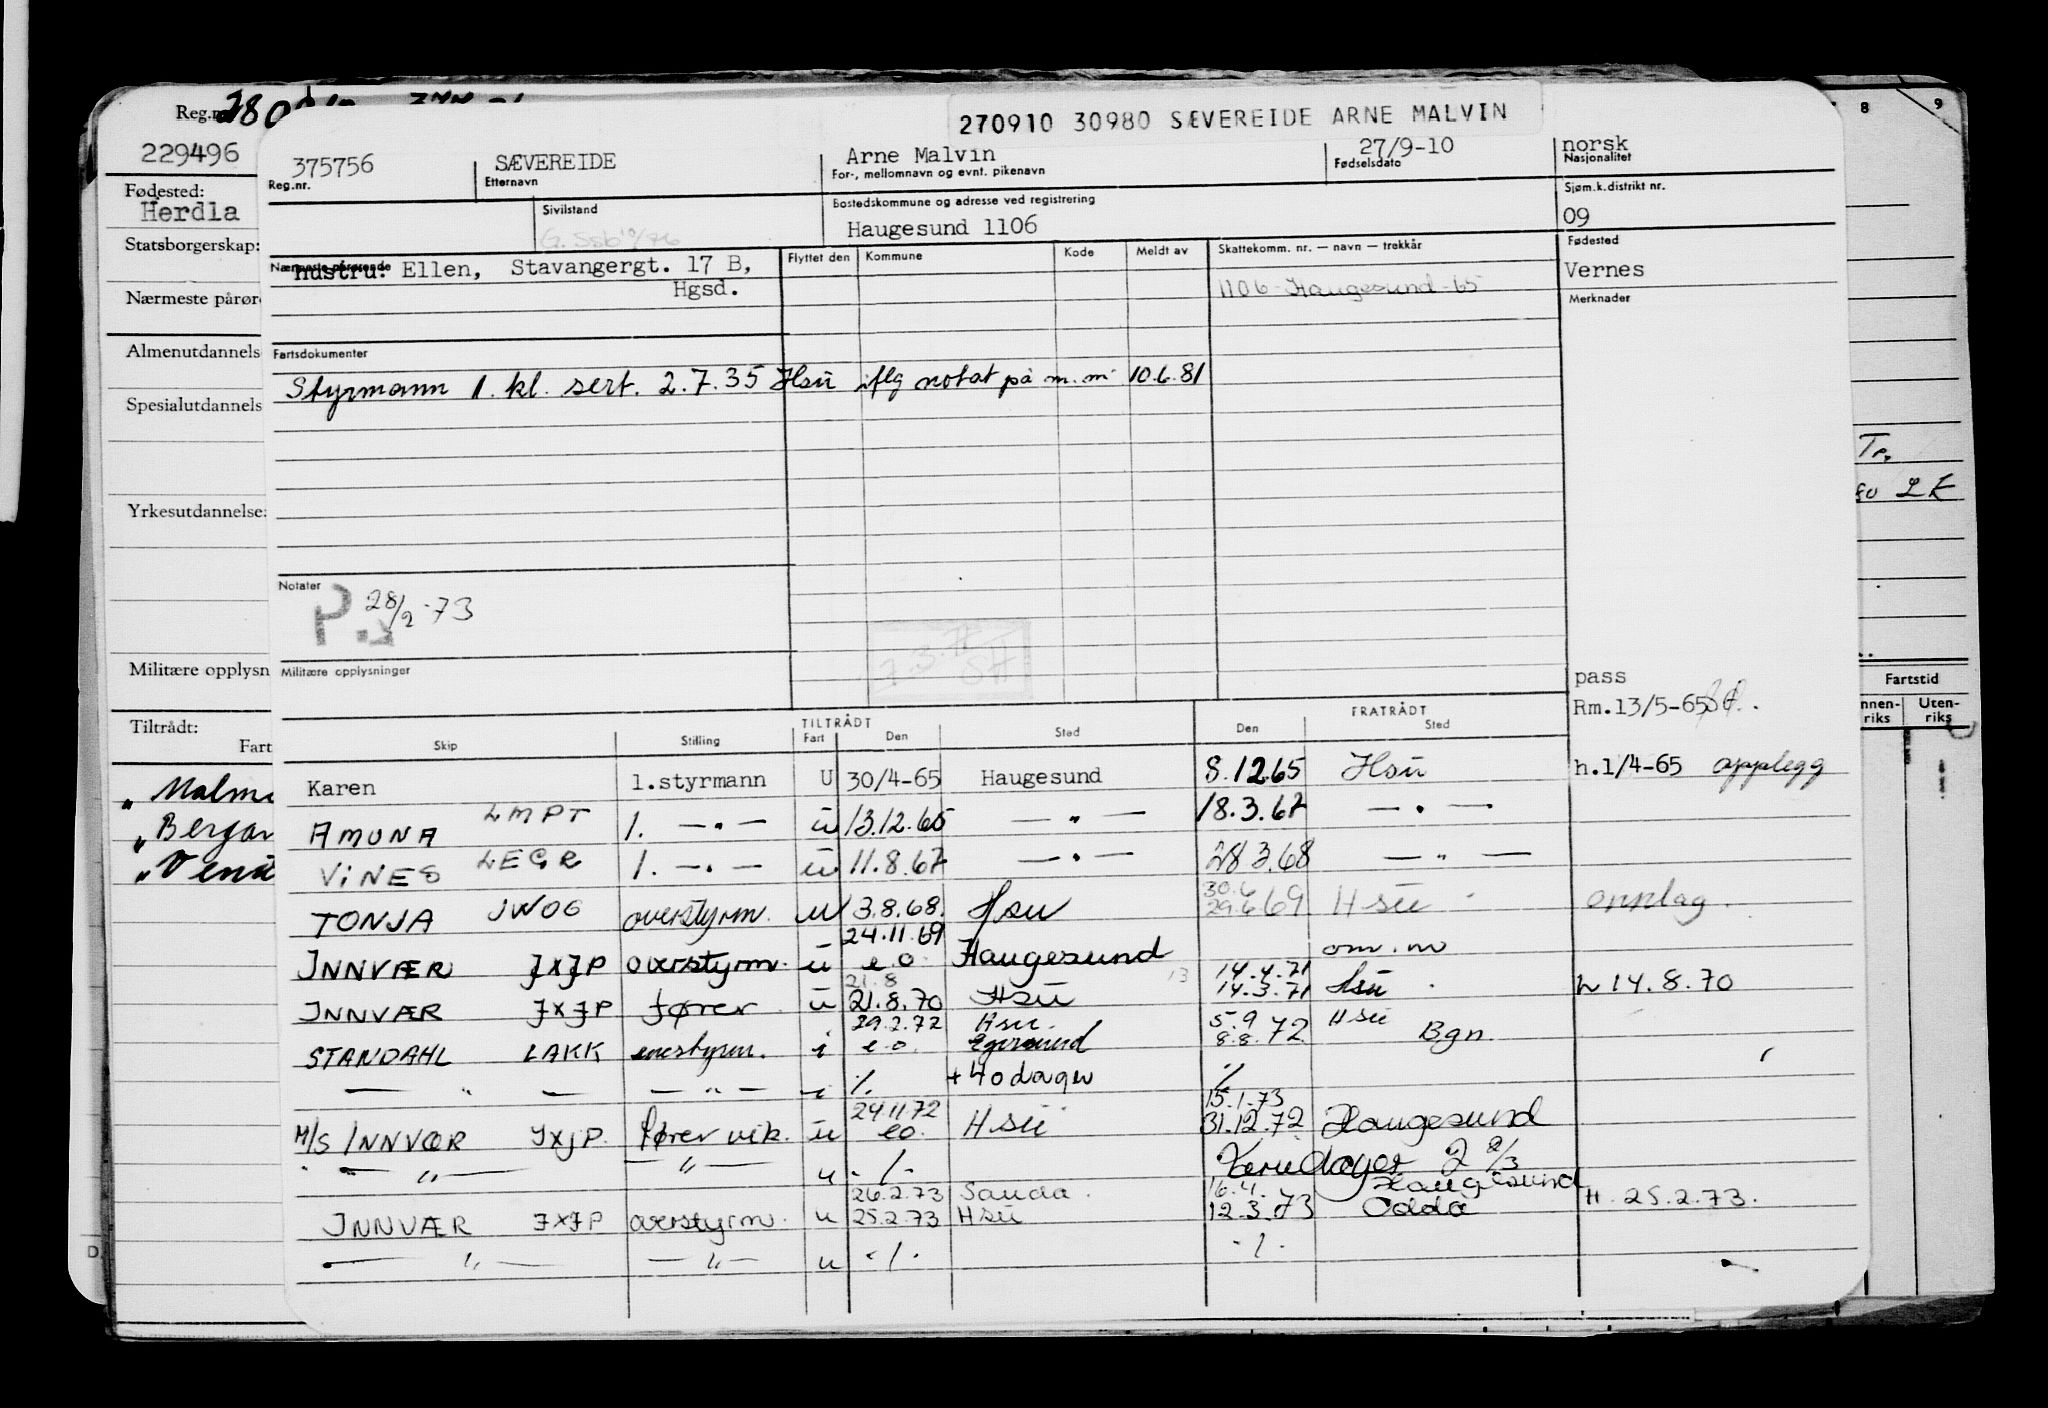 270910 30980 SÆVEREIDE ARNE MALVIN
8 9
Reg.nr.
229496
375756 SÆVEREIDE Arne Malvin 27/9-10 norsk
Reg.nr. Etternavn For-, mellomnavn og evnt. pikenavn Fødselsdato Nasjonalitet
Fødested:
Herdla
Sivilstand Bostedskommune og adresse ved registrering Sjøm.k.distrikt nr.
Haugesund 1106 09
Statsborgerskap:
Nærmeste pårørende Flyttet den Kommune Kode Meldt av Skattekomm. nr. — navn — trekkår Fødested
hustru: Ellen, Stavangergt. 17 B, Vernes
Hgsd. 1106-Haugesund-65
Nærmeste pårør Merknader
Almenutdannels Fartsdokumenter
Styrmann 1. kl. sert. 2.7.35 Hsu iflg notat på m.m. 10.6.81
Spesialutdannels
Tr.
Yrkesutdannelse:
Notater
P. 28/2-73
Militære opplysn Militære opplysninger
pass
Rm.13/5-65
Fartstid
nnen-riks Uten-riks
Tiltrådt:
Fart
TILTRÅDT FRATRÅDT
Skip Stilling Fart Den Sted Den Sted
Karen 1.styrmann U 30/4-65 Haugesund 8.12.65 Hsu h.1/4-65 opplegg
AMUNA LMPT 1. — " — u 13.12.65 — " — 18.3.67 — " —
VINES LEGR 1. — " — u 11.8.67 — " — 28.3.68 — " —
30.6
TONJA JWOG overstyrm. u 3.8.68. Hsu 29.6 69 Hsu opplag.
24.11.69
INNVÆR JXJP overstyrm. u e.o. Haugesund om.m
21.8 14.4.71
INNVÆR JXJP fører u 21.8.70 Hsu 14.3.71 Hsu h 14.8.70
29.2.72 Hsu. 5.9 Hsu
STANDAHL LAKK enestyrm. i e.o. Egersund 8.8.72 Bgn.
— " — — " — i ·/. +40 dager ·/.
24.11.72 15.1.73
M/S INNVÆR JXJP. fører vik. u eo. Hsu 31.12.72 Haugesund
— " — — " — u -/-
26.2.73 Sauda. 16.4. Haugesund
INNVÆR JXJP overstyrm. u 25.2.73 Hsu 12.3.73 Odda H. 25.2.73.
— " — — " — u -/- -/-